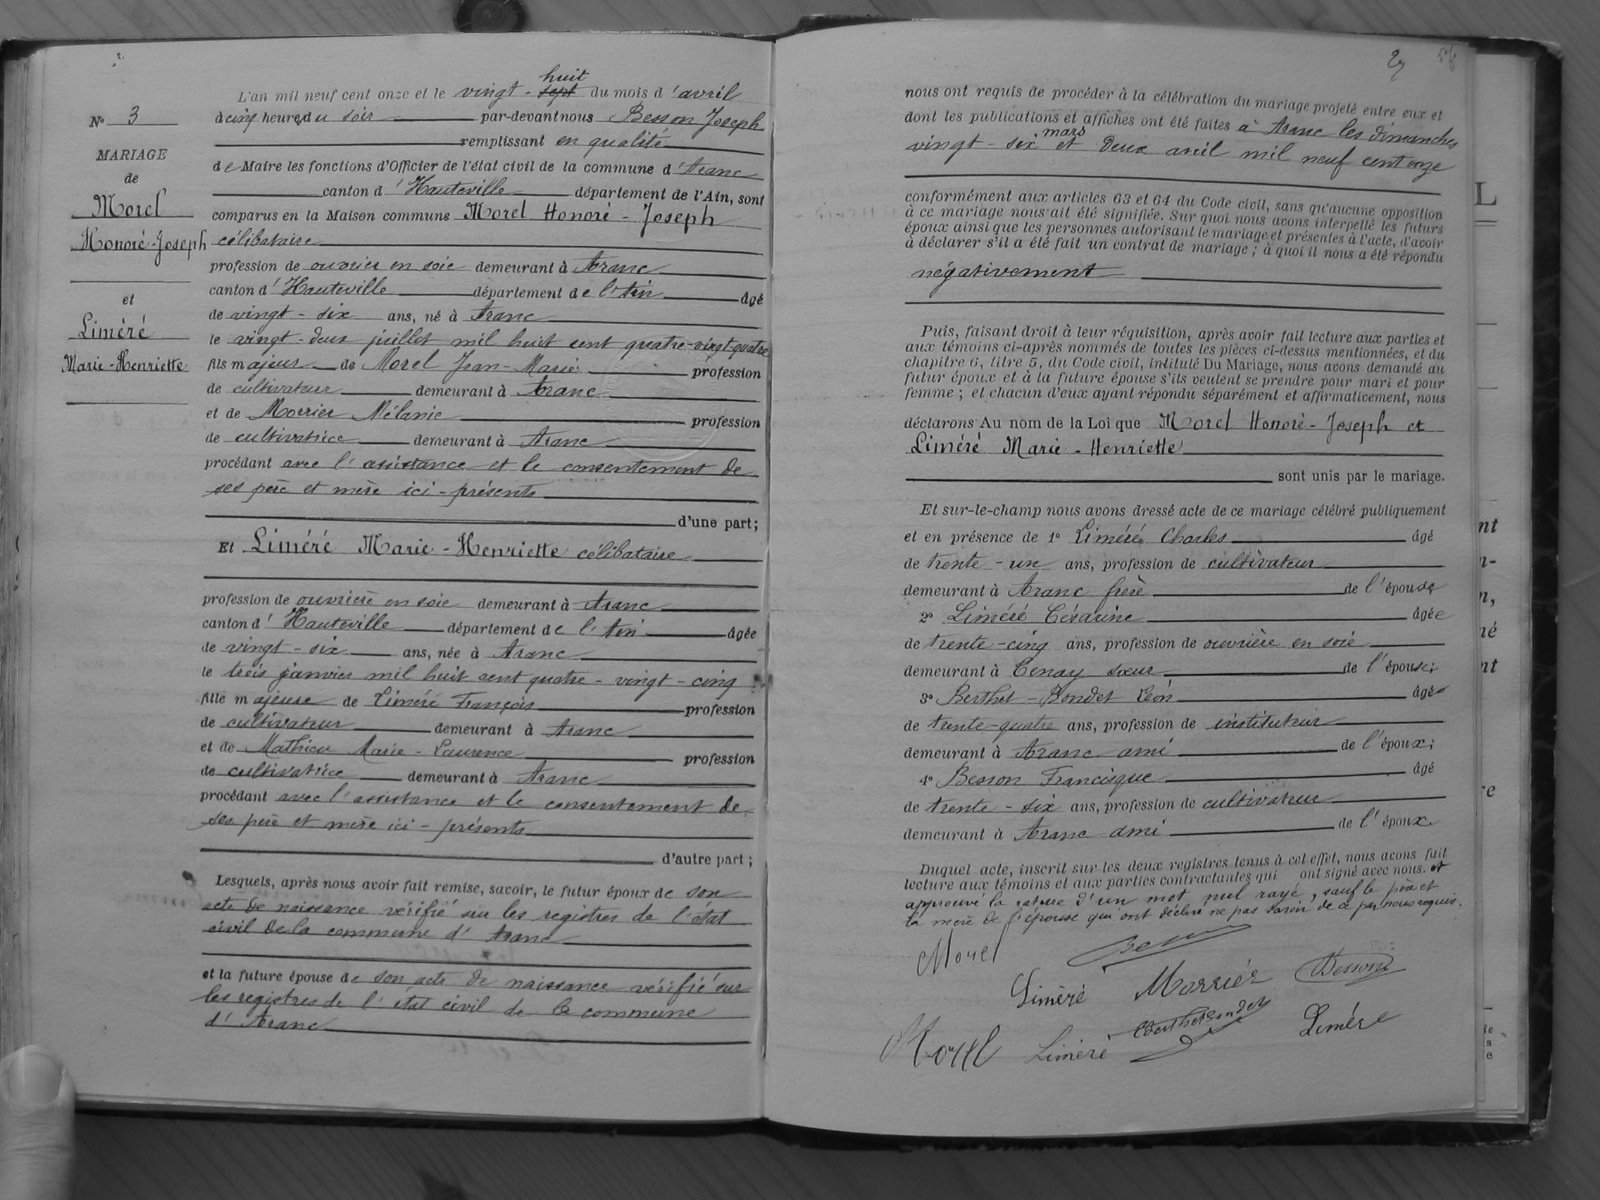 N° 3
MARIAGE
de
Morel
Honoré-Joseph
et
Liméré
Marie-Henriette
L'an mil neuf cent onze et le vingt-sept huit du mois d'avril
à cinq heures du soir par-devant nous Besson Joseph
remplissant en qualité
de Maire les fonctions d'Officier de l'état civil de la commune d'Aranc
canton d'Hauteville département de l'Ain, sont
comparus en la Maison commune Morel Honoré-Joseph
célibataire
profession de ouvrier en soie demeurant à Aranc
canton d'Hauteville département de l'Ain âgé
de vingt-six ans, né à Aranc
le vingt-deux juillet mil huit cent quatre-vingt-quatre
fils majeur de Morel Jean-Marie profession
de cultivateur demeurant à Aranc
et de Morrier Mélanie profession
de cultivatrice demeurant à Aranc
procédant avec l'assistance et le consentement de
ses père et mère ici-présents
d'une part;
Et Liméré Marie-Henriette célibataire
profession de ouvrière en soie demeurant à Aranc
canton d'Hauteville département de l'Ain âgée
de vingt-six ans, née à Aranc
le trois janvier mil huit cent quatre-vingt-cinq
fille majeure de Liméré François profession
de cultivateur demeurant à Aranc
et de Mathieu Marie-Laurence profession
de cultivatrice demeurant à Aranc
procédant avec l'assistance et le consentement de
ses père et mère ici-présents
d'autre part;
Lesquels, après nous avoir fait remise, savoir, le futur époux de son
acte de naissance vérifié sur les registres de l'état
civil de la commune d'Aranc
et la future épouse de son acte de naissance vérifié sur
les registres de l'état civil de la commune
d'Aranc
27
nous ont requis de procéder à la célébration du mariage projeté entre eux et
dont les publications et affiches ont été faites à Aranc les dimanches
vingt-six mars et deux avril mil neuf cent onze
conformément aux articles 63 et 64 du Code civil, sans qu'aucune opposition
à ce mariage nous ait été signifiée. Sur quoi nous avons interpellé les futurs
époux ainsi que les personnes autorisant le mariage et présentes à l'acte, d'avoir
à déclarer s'il a été fait un contrat de mariage; à quoi il nous a été répondu
négativement
Puis, faisant droit à leur réquisition, après avoir fait lecture aux parties et
aux témoins ci-après nommés de toutes les pièces ci-dessus mentionnées, et du
chapitre 6, titre 5, du Code civil, intitulé Du Mariage, nous avons demandé au
futur époux et à la future épouse s'ils veulent se prendre pour mari et pour
femme; et chacun d'eux ayant répondu séparément et affirmativement, nous
déclarons Au nom de la Loi que Morel Honoré-Joseph et
Liméré Marie-Henriette
sont unis par le mariage.
Et sur-le-champ nous avons dressé acte de ce mariage célébré publiquement
et en présence de 1° Liméré Charles âgé
de trente-un ans, profession de cultivateur
demeurant à Aranc frère de l'épouse
2° Liméré Césarine âgée
de trente-cinq ans, profession de ouvrière en soie
demeurant à Tenay sœur de l'épouse;
3° Berthet-Bondet Léon âgé
de trente-quatre ans, profession de instituteur
demeurant à Aranc ami de l'époux;
4° Besson Francisque âgé
de trente-six ans, profession de cultivateur
demeurant à Aranc ami de l'époux
Duquel acte, inscrit sur les deux registres tenus à cet effet, nous avons fait
lecture aux témoins et aux parties contractantes qui ont signé avec nous. et
approuvé la rature d'un mot nul rayé, sauf le père et
la mère de l'épouse qui ont déclaré ne pas savoir de ce par nous requis.
Morel
Liméré Morrier Besson
Morel Liméré Berthet Bondet Liméré